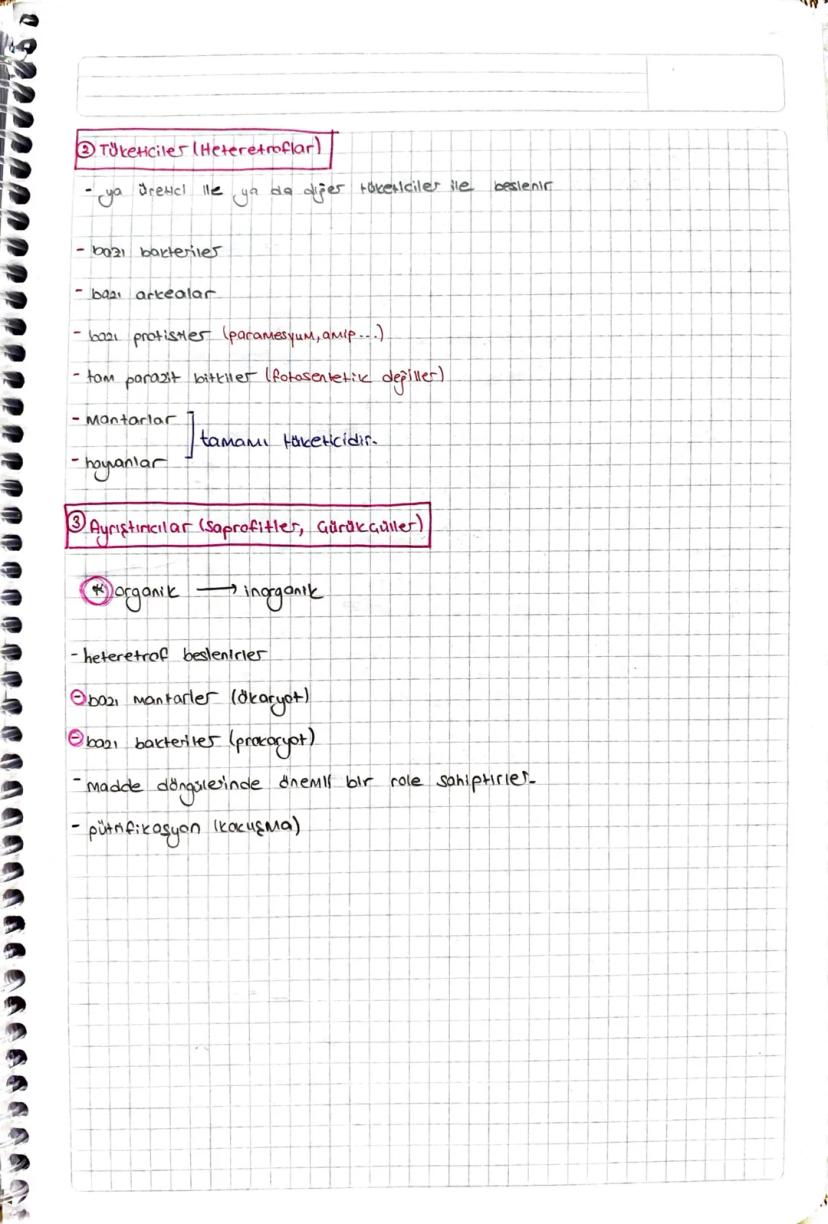 ② Tüketiciler (Heteretroflar)
- ya üretici ile ya da diğer tüketiciler ile beslenir
- bazı bakteriler
- bazı arkealar
- bazı protistler (paramesyum, amip...)
- tam parazit bitkiler (fotosentetik değiller)
- Mantarlar
tamamı tüketicidir.
- hayvanlar
③ Ayrıştırıcılar (Saprofitler, Çürükçüller)
* organik → inorganik
- heteretrof beslenirler
- bazı mantarlar (ökaryot)
- bazı bakteriler (prokaryot)
- madde döngülerinde önemli bir role sahiptirler.
- pütrifikasyon (kokuşma)